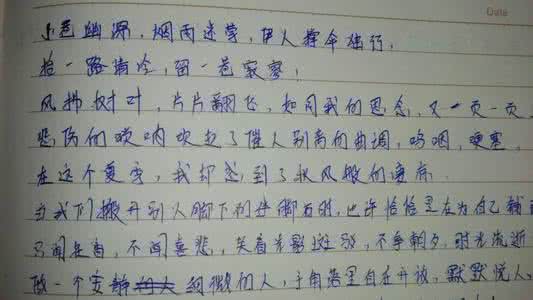 Date
小巷幽深,烟雨迷蒙,伊人撑伞独行,
拾一路清冷,留一巷寂寥,
风拂树叶,片片翻飞,如同我的思念,又一页一页,
悲伤的唢呐吹起了催人别离的曲调,呜咽,哽塞,
在这个夏季,我却感到了秋风般的凄凉.
当我们搬开别人脚下的绊脚石时,也许恰恰是在为自己铺
只闻花香,不闻喜悲,笑看光影斑驳,不争朝夕,时光流逝
做一个安静细微的人,于角落里自在开放,默默悦人,